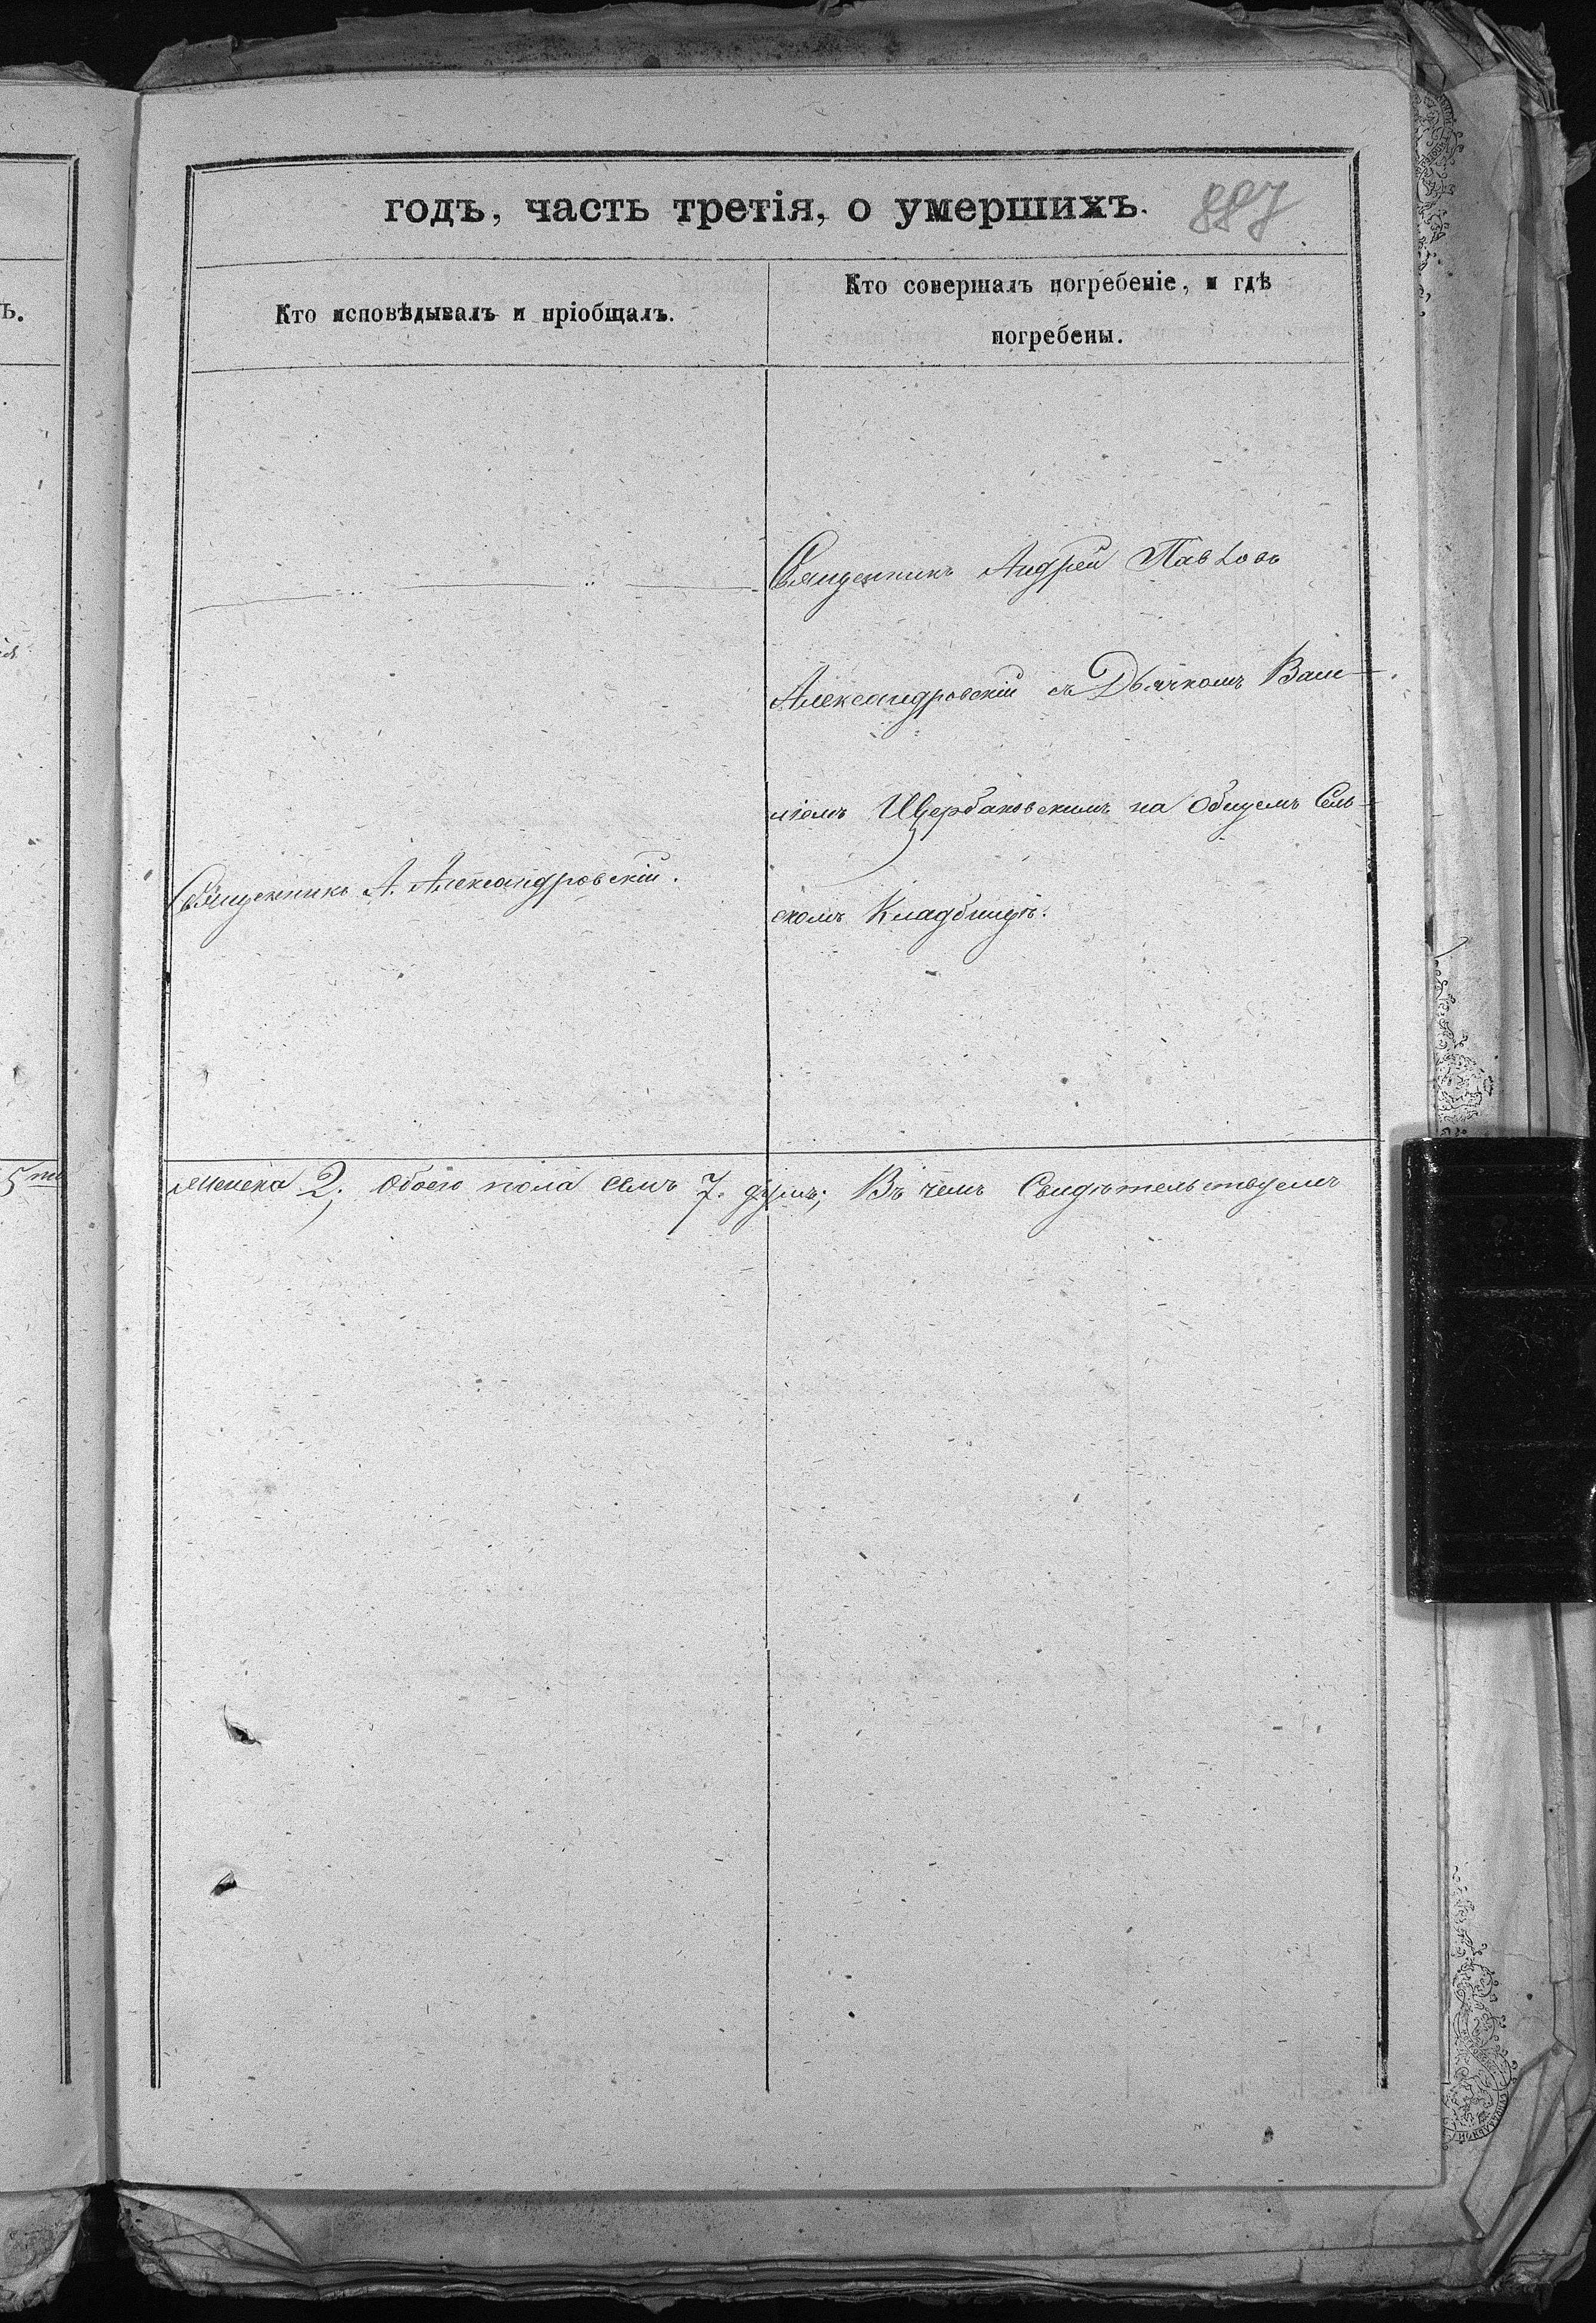 годъ, часть третія, о умершихъ.
887
Кто исповѣдывалъ и пріобщалъ.
Кто совершалъ погребеніе, и гдѣ
погребены.
Священникъ Андрей Павловъ
Александровскій съ Дьячкомъ Васи-
ліемъ Щербаковскимъ на общемъ Сель-
скомъ Кладбищѣ.
Священникъ А. Александровскій.
5
женска 2; обоего пола семь 7. душъ; Въ чемъ Свидѣтельствуемъ